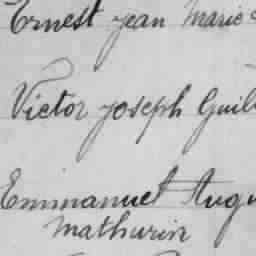 Ernest Jean Marie
Victor Joseph Guil
Emmanuel Augu
Mathurin